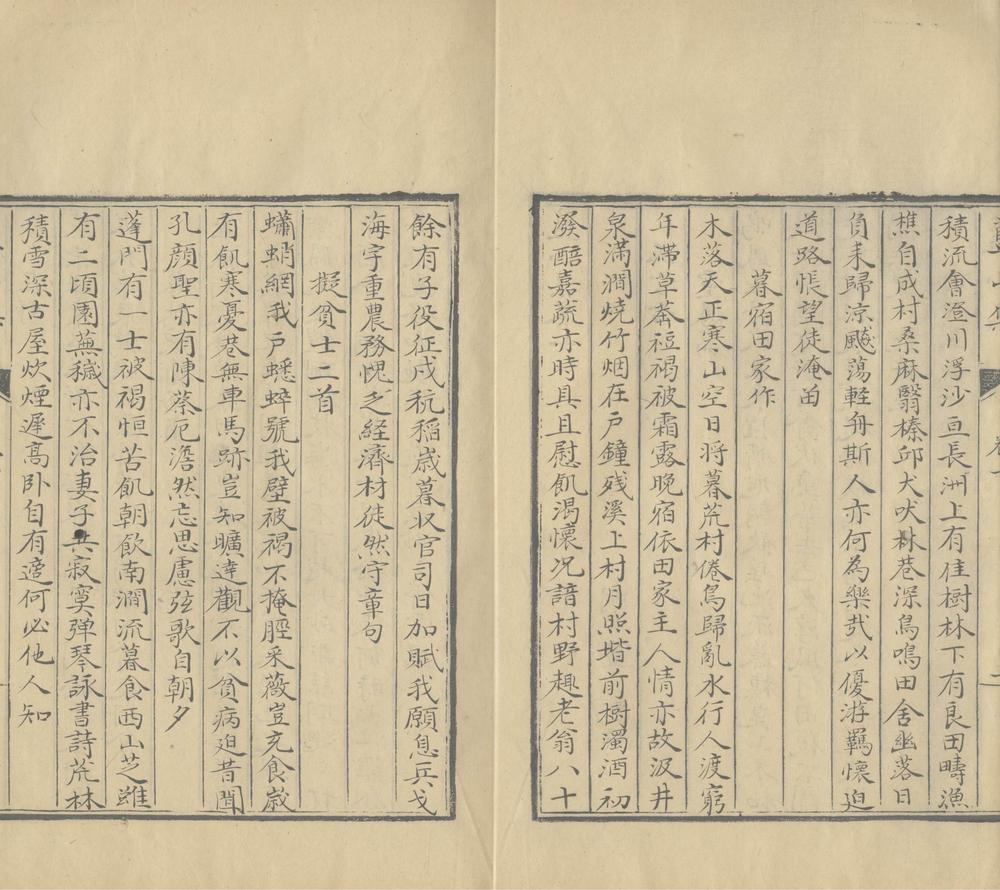 積流會澄川浮沙亘長洲上有佳樹林下有良田疇漁
樵自成村桑麻翳榛邱犬吠林巷深鳥鳴田舍幽落日
負耒歸涼飈蕩軽舟斯人亦何為樂哉以優游羈懷迫
道路悵望徒淹畱
暮宿田家作
木落天正寒山空日将暮荒村倦鳥歸亂水行人渡窮
年滯草莽裋褐被霜露晚宿依田家主人情亦故汲井
泉滿澗燒竹烟在戸鐘残溪上村月照堦前樹濁酒初
潑醅嘉蔬亦時具且慰飢渇懷况諳村野趣老翁八十
餘有子役征戍秔稲歳暮収官司日加賦我願息兵戈
海宇重農務愧乏経濟材徒然守章句
擬貧士二首
蠨蛸網我戸蟋蟀號我壁被褐不掩脛采薇豈充食歳
有飢寒憂巷無車馬跡豈知曠達觀不以貧病迫昔聞
孔顔聖亦有陳蔡厄澹然忘思慮弦歌自朝夕
蓬門有一士被褐恒苦飢朝飲南澗流暮食西山芝雖
有二頃園蕪穢亦不治妻子共寂寞弾琴詠書詩荒林
積雪深古屋炊煙遲高卧自有適何必他人知